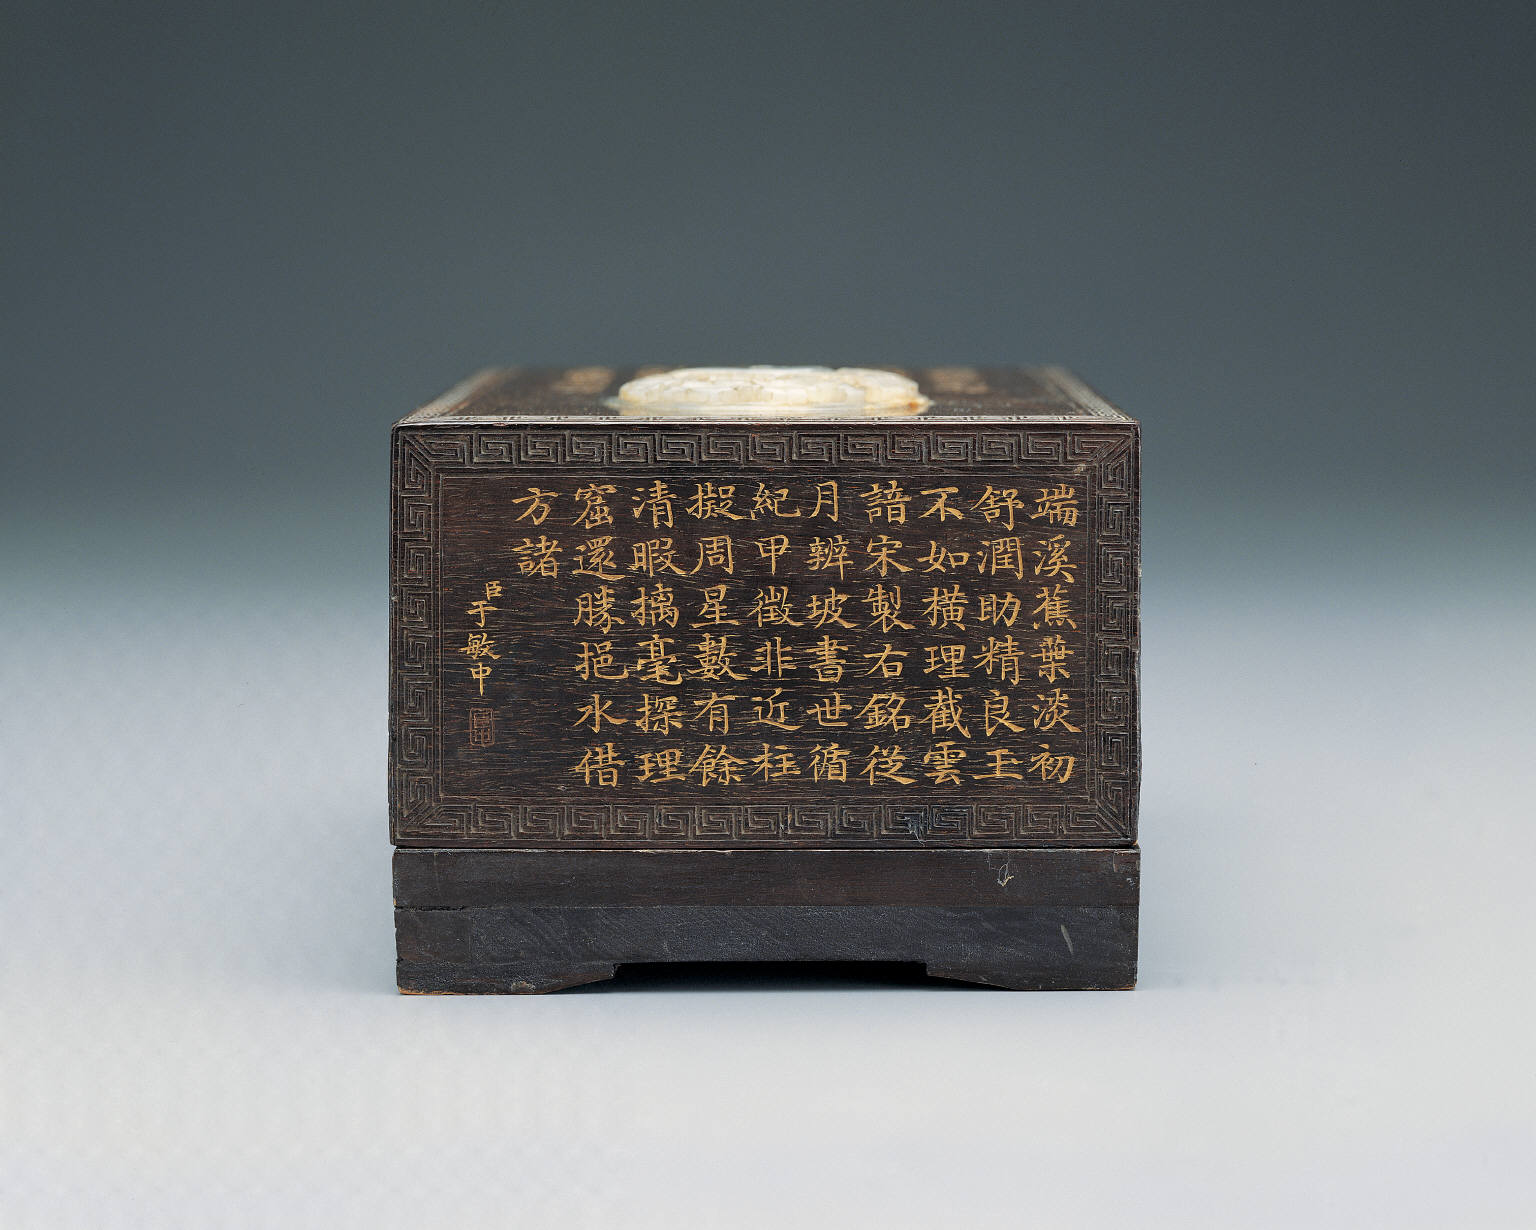 端溪蕉葉淡初
舒潤助精良玉
不如橫理截雲
諳宋製右銘從
月辨坡書世循
紀甲徵非近柱
擬周星數有餘
清暇摛毫探理
窟還勝挹水借
方諸
臣于敏中